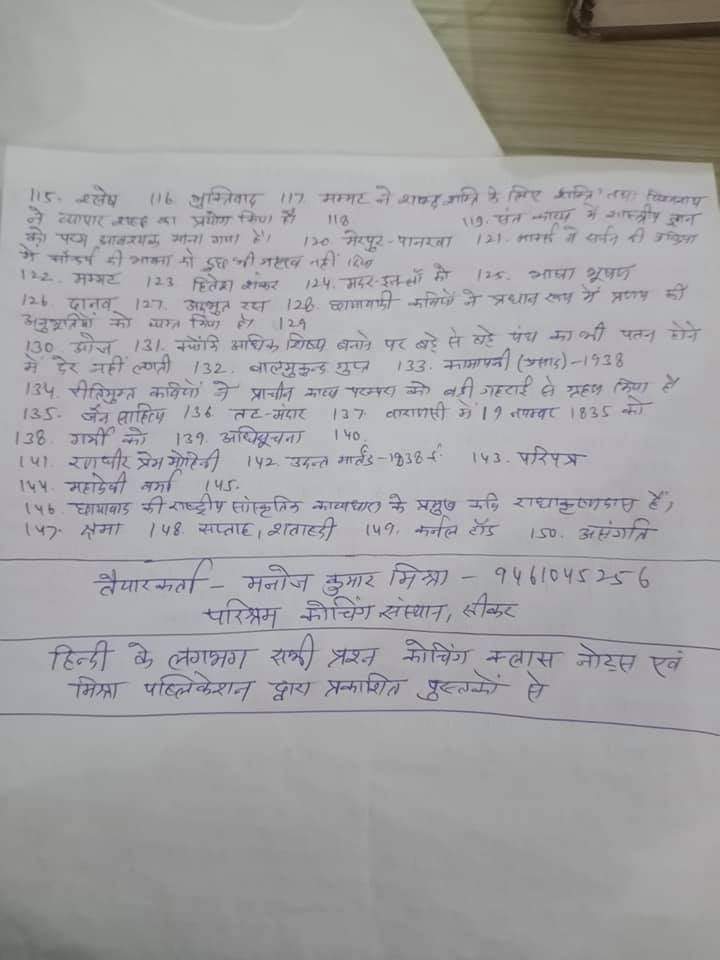 115. श्लेष 116. भुक्तिवाद 117. मम्मट ने शब्द शक्ति के लिए शक्ति तथा विश्वनाथ
ने व्यापार शब्द का प्रयोग किया है 118 119. संत काव्य में शास्त्रीय ज्ञान
को परम आवश्यक माना गया है। 120 मेरपुर-पानरवा 121. मार्क्स ने सर्जन की प्रक्रिया
में सौंदर्य की भावना को कुछ भी महत्व नहीं दिया
122. मम्मट 123 हितेश शंकर 124. मदर-इन-लॉ को 125. भाषा भूषण
126. दानव 127. अद्भुत रस 128. छायावादी कवियों ने प्रधान रूप में प्रणय की
अनुभूतियों को व्यक्त किया है। 129
130. ओज 131. क्योंकि अधिक शिष्य बनाने पर बड़े से बड़े पंथ का भी पतन होने
में देर नहीं लगती 132. बालमुकुन्द गुप्त 133. कामायनी (प्रसाद)-1938
134. रीतिमुक्त कवियों ने प्राचीन काव्य परम्परा को बड़ी गहराई से ग्रहण किया है
135. जैन साहित्य 136 तट-मंदार 137. वाराणसी में 19 नवम्बर 1835 को
138. गर्मी को 139. अधिसूचना 140.
141. रणधीर प्रेम मोहिनी 142. उदन्त मार्तंड-1838 ई. 143. परिपत्र
144. महादेवी वर्मा 145.
146. छायावाद की राष्ट्रीय सांस्कृतिक काव्यधारा के प्रमुख कवि राधाकृष्णदास हैं,
147. क्षमा 148. सप्ताह, शताब्दी 149. कर्नल टॉड 150. असंगति
तैयारकर्ता - मनोज कुमार मिश्रा - 9461045256
परिश्रम कोचिंग संस्थान, सीकर
हिन्दी के लगभग सभी प्रश्न कोचिंग क्लास नोट्स एवं
मिश्रा पब्लिकेशन द्वारा प्रकाशित पुस्तकों से